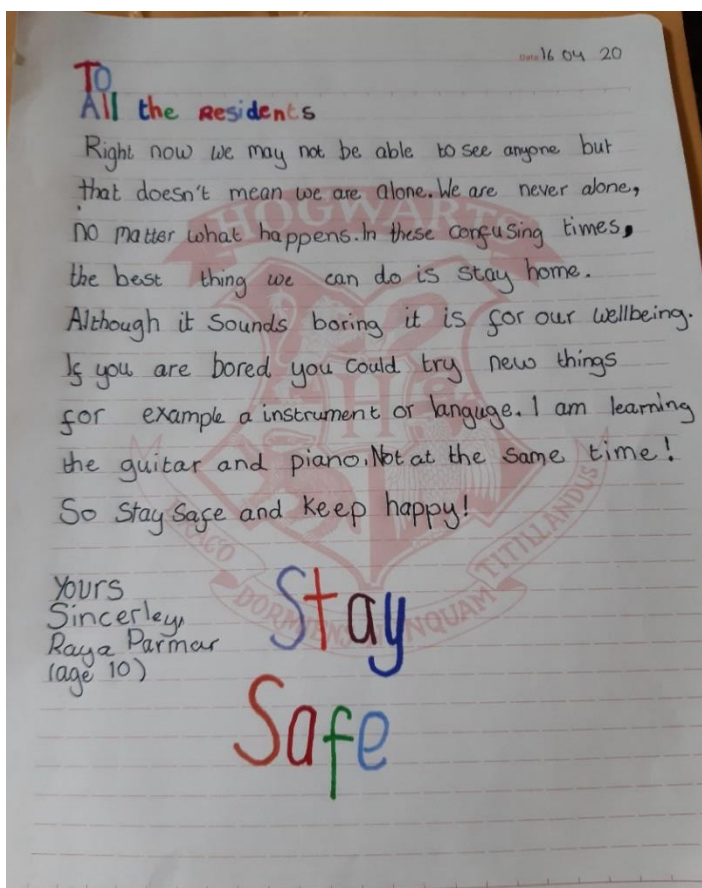 Date 16 04 20
To
All the Residents
Right now we may not be able to see anyone but
that doesn't mean we are alone. We are never alone,
no matter what happens. In these confusing times,
the best thing we can do is stay home.
Although it sounds boring it is for our wellbeing.
If you are bored you could try new things
for example a instrument or languge. I am learning
the guitar and piano. Not at the same time!
So stay safe and keep happy!
HOGWARTS
H
DORMIENS NUNQUAM TITILLANDUS
Yours
Sincerley,
Raya Parmar
(age 10)
Stay
Safe